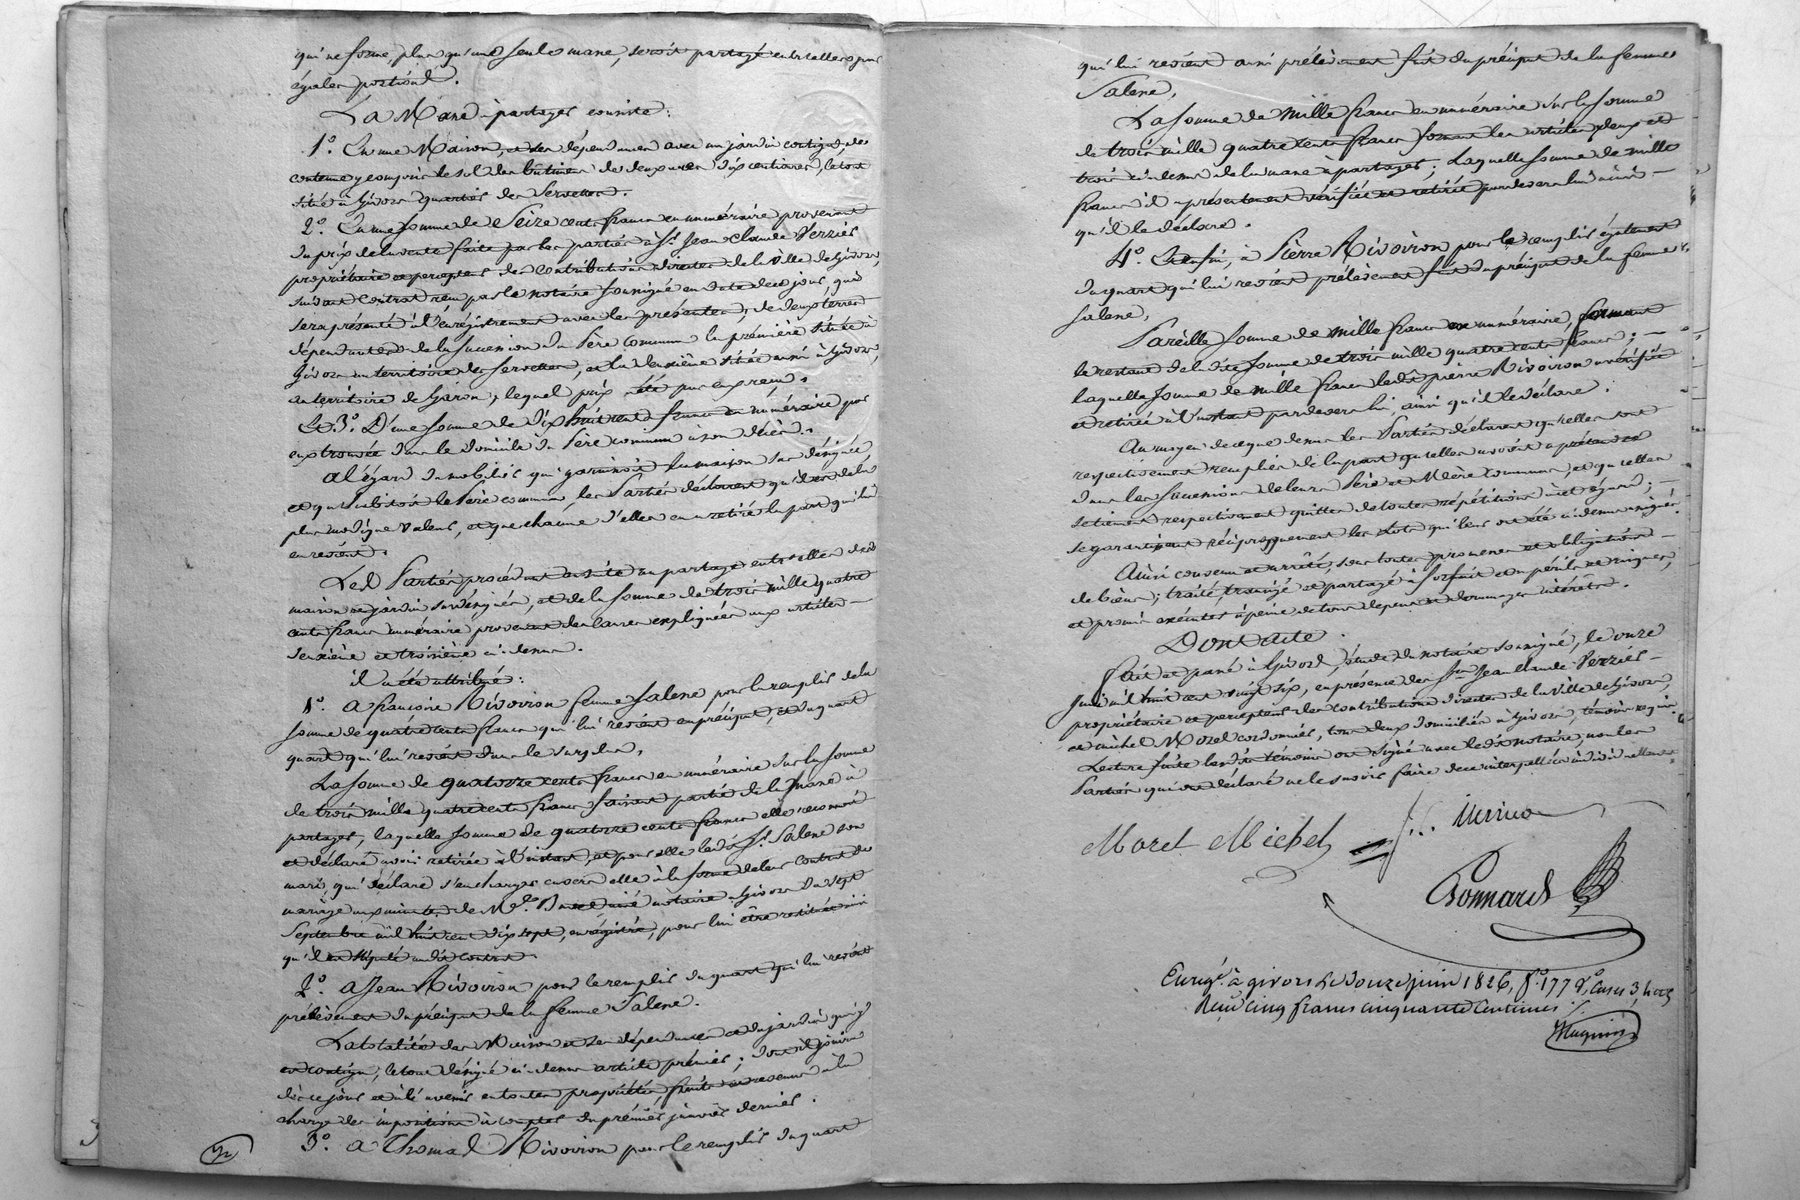 qui ne forme plus qu'une seule masse, seroit partagé entr'elles par
égales portions.
La Masse à partager consiste:
1.° En une Maison, et ses dépendances avec un jardin contigu, de
contenue y compris le sol des bâtimens de deux ares dix centiares, le tout
situé à Givors quartier des Servettes.
2.° En une somme de Seize cents francs en numéraire provenant
du prix de la vente faite par les parties à Sr. Jean Claude Verzier
propriétaire et percepteur des contributions directes de la ville de Givors,
suivant contrat reçu par le notaire soussigné en date de ce jour, qui
sera présenté à l'enrégistrement avec les présentes, de deux terres
dépendantes de la succession du Père commun la première située à
Givors au territoire des Servettes, et la deuxième située aussi à Givors,
au territoire de Garon, lequel prix a été par eux reçu.
Et 3.° D'une somme de Dix huit cents francs en numéraire par
eux trouvée dans le domicile du Père commun à son décès.
a l'égard du mobilier qui garnissoit la maison sus désignée,
et qu'habitoit le Père commun, les Parties déclarent qu'il est de la
plus modique valeur, et que chacune d'elles en a retiré la part qui lui
en revient.
Les d. Parties procédant ensuite au partage entr'elles desd.
maison et jardin susdésignés, et de la somme de trois mille quatre
cents francs numéraire provenant des causes expliquées aux articles
deuxième et troisième ci-dessus.
il a été attribué:
1.° a francoise Rivoiron femme Salene pour la remplir de la
somme de quatre cents francs qui lui revient en préciput, et du quart
quart qui lui revient dans le surplus,
La somme de quatorze cents francs en numéraire sur la somme
de trois mille quatre cents francs faisant partie de la Masse à
partager, laquelle somme de quatorze cents francs elle reconnoit
et déclare avoir retirée à l'instant, et pour elle led. Sr. Salene son
mari, qui déclare s'en charger envers elle à la forme de leur contrat de
mariage aux minutes de Me. notaire à Givors du sept
Septembre mil huit cent dix sept, enrégistré, pour lui être restituée ainsi
qu'il est stipulé audit contrat.
2.° a Jean Rivoiron pour le remplir du quart qui lui revient
prélèvement du préciput de la femme Salene.
La totalité des Maison et ses dépendances et du jardin qui y
est contigu, le tout désigné ci-dessus article premier; dont il jouira
dès ce jour et à l'avenir en toute propriété, fruits et revenus à la
charge des impositions à compter du premier janvier dernier.
3.° a Thomas Rivoiron pour le remplir du quart
qui lui revient aussi prélèvement fait du préciput de la femme
Salene,
La somme de mille francs en numéraire sur la somme
de trois mille quatre cents francs formant les articles deux et
trois ci-dessus de la masse à partager, Laquelle somme de mille
francs il a présentement vérifiée et retirée pardevers lui ainsi
qu'il le déclare.
4.° Et enfin, à Pierre Rivoiron pour le remplir également
du quart qui lui revient prélèvement fait du préciput de la femme
Salene,
Pareille somme de mille francs en numéraire, formant
le restant de la dite somme de trois mille quatre cents francs;
laquelle somme de mille francs ledit pierre Rivoiron a vérifiée
et retirée à l'instant pardevers lui, ainsi qu'il le déclare.
Au moyen de ce que dessus les Parties déclarent qu'elles sont
respectivement remplies de la part qu'elles avoient à prétendre
dans les successions de leurs Père et Mère communs, et qu'elles
se tiennent respectivement quittes de toutes répétitions à cet égard;
se garantissant réciproquement les lots qui leur ont été ci dessus assignés.
Ainsi convenu et arrêté, sous toutes promesses et obligations
de biens; traité, transigé et partagé à forfait et aux périls et risques,
et promis exécuter à peine de tous dépens et dommages intérêts.
Dont acte.
Fait et passé à Givors, étude du notaire soussigné, le onze
Juin mil huit cent vingt six, en présence des Srs. Jean Claude Verzier
propriétaire et percepteur des contributions directes de la Ville de Givors,
et michel Morel cordonnier, tous deux domiciliés à Givors, témoins requis.
Lecture faite lesdits témoins ont signé avec ledit notaire, non les
Parties qui ont déclaré ne le savoir faire de ce interpellées individuellement.
Morel Michel
Bonnard
Enreg.é à givors le douze juin 1826, f.° 177 v.° Cases 3,
Reçu cinq francs cinquante Centimes